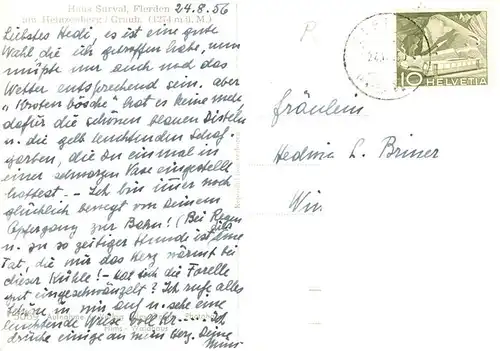 Haus Surval, Flerden
am Heinzenberg / Graub. (1254 m ü. M.)
24.8.56
Liebstes Hedi, es ist eine gute
Wahl die ich getroffen habe, nun
müsste nur auch noch das
Wetter entsprechend sein. aber
hat es keine mehr,
dafür die schönen blauen Disteln
u. die gelb leuchtenden Schaf-
garben, die du einmal in
einer schwarzen Vase eingestellt
hattest. – Ich bin immer noch
glücklich bewegt von Deinem
Opfergang zur Bahn! (Bei Regen
u. zu so zeitiger Stunde ist eine
Tat, die mir das Herz wärmt bei
dieser Kühle! – hat sich die Forelle
gut eingeschwänzelt? Ich rufe alles
Schöne in mir auf u. sehe eine
leuchtende Weise voll
drücke einige an mein Herz. Deine
Fräulein
Hedwig L. Briner
Win
10 HELVETIA